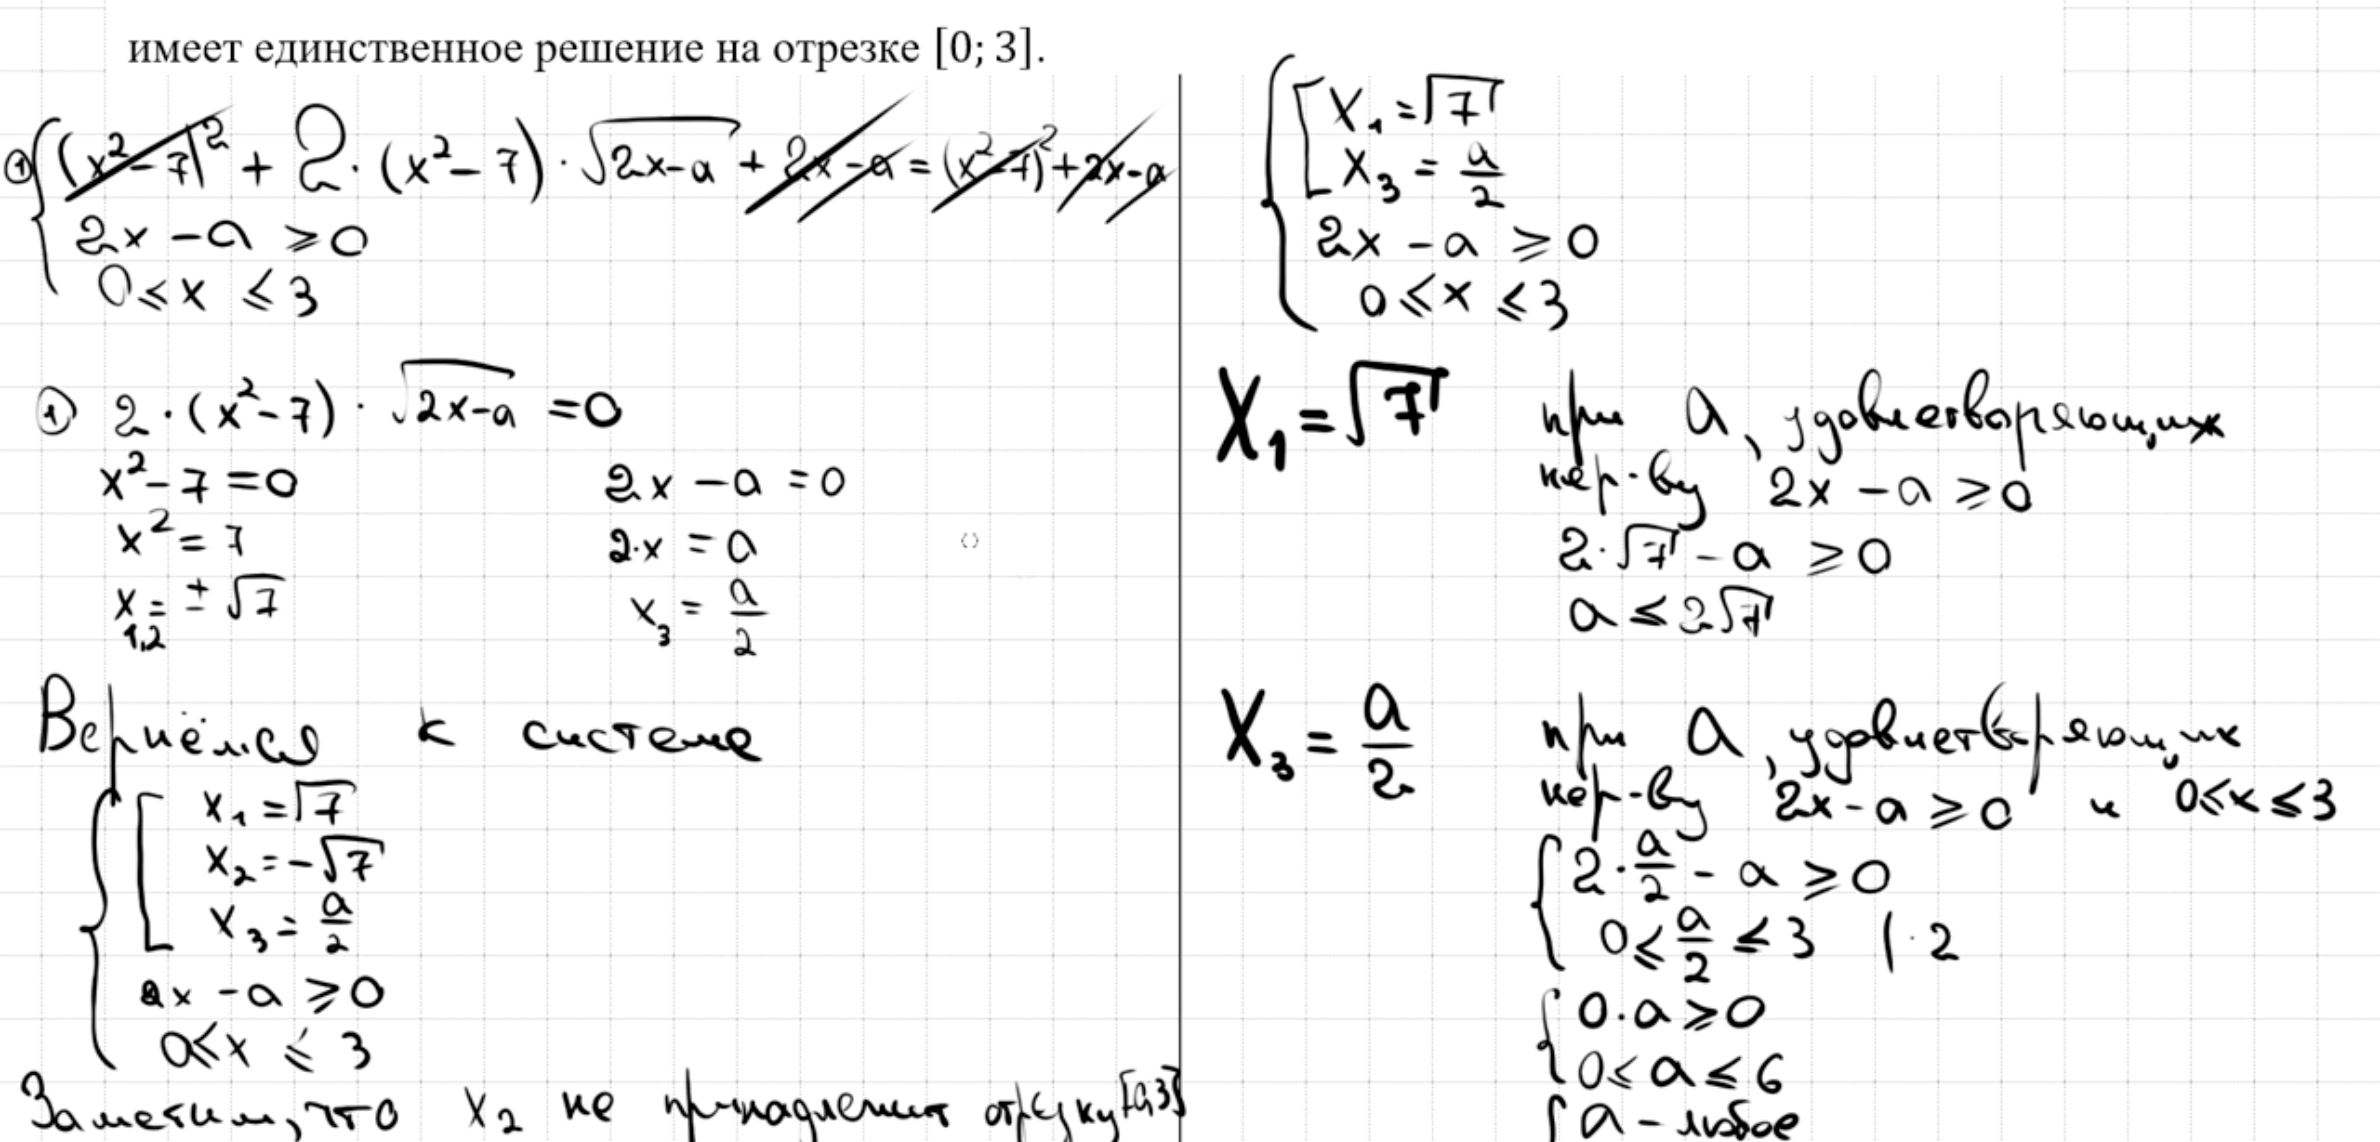 имеет единственное решение на отрезке [0; 3].
① { (x²-7)² + 2·(x²-7)·√(2x-a) + 2x-a = (x²-7)² + 2x-a
2x - a ≥ 0
0 ≤ x ≤ 3
① 2·(x²-7)·√(2x-a) = 0
x²-7 = 0 2x - a = 0
x² = 7 2·x = a
x₁,₂ = ±√7 x₃ = a/2
Вернёмся к системе
{ [ x₁ = √7
x₂ = -√7
x₃ = a/2
2x - a ≥ 0
0 ≤ x ≤ 3
Заметим, что x₂ не принадлежит отрезку [0,3]
{ [ x₁ = √7
x₃ = a/2
2x - a ≥ 0
0 ≤ x ≤ 3
x₁ = √7 при a, удовлетворяющих
нер-ву 2x - a ≥ 0
2·√7 - a ≥ 0
a ≤ 2√7
x₃ = a/2 при a, удовлетворяющих
нер-ву 2x - a ≥ 0 и 0 ≤ x ≤ 3
{ 2·a/2 - a ≥ 0
0 ≤ a/2 ≤ 3 |·2
{ 0·a ≥ 0
0 ≤ a ≤ 6
{ a - любое